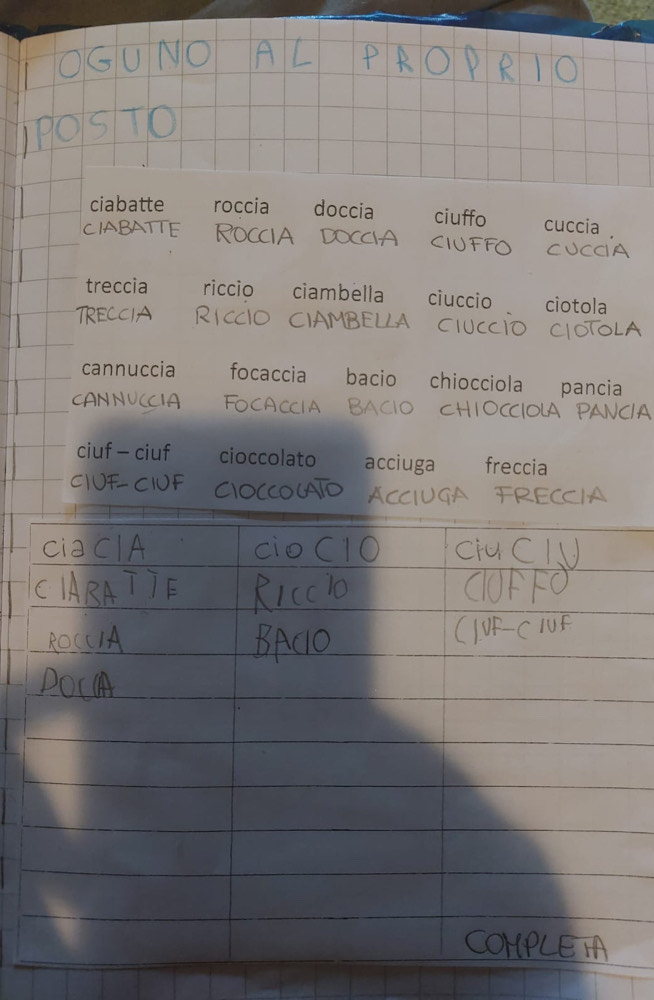 OGUNO AL PROPRIO
POSTO
ciabatte roccia doccia ciuffo cuccia
CIABATTE ROCCIA DOCCIA CIUFFO CUCCIA
treccia riccio ciambella ciuccio ciotola
TRECCIA RICCIO CIAMBELLA CIUCCIO CIOTOLA
cannuccia focaccia bacio chiocciola pancia
CANNUCCIA FOCACCIA BACIO CHIOCCIOLA PANCIA
ciuf – ciuf cioccolato acciuga freccia
CIUF-CIUF CIOCCOLATO ACCIUGA FRECCIA
cia CIA cio CIO ciu CIU
CIABATTE RICCIO CIUFFO
ROCCIA BACIO CIUF-CIUF
DOCIA
COMPLETA